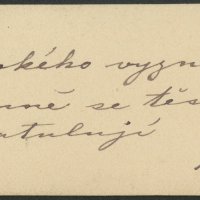 ského vyzn
nně se těš
atulují